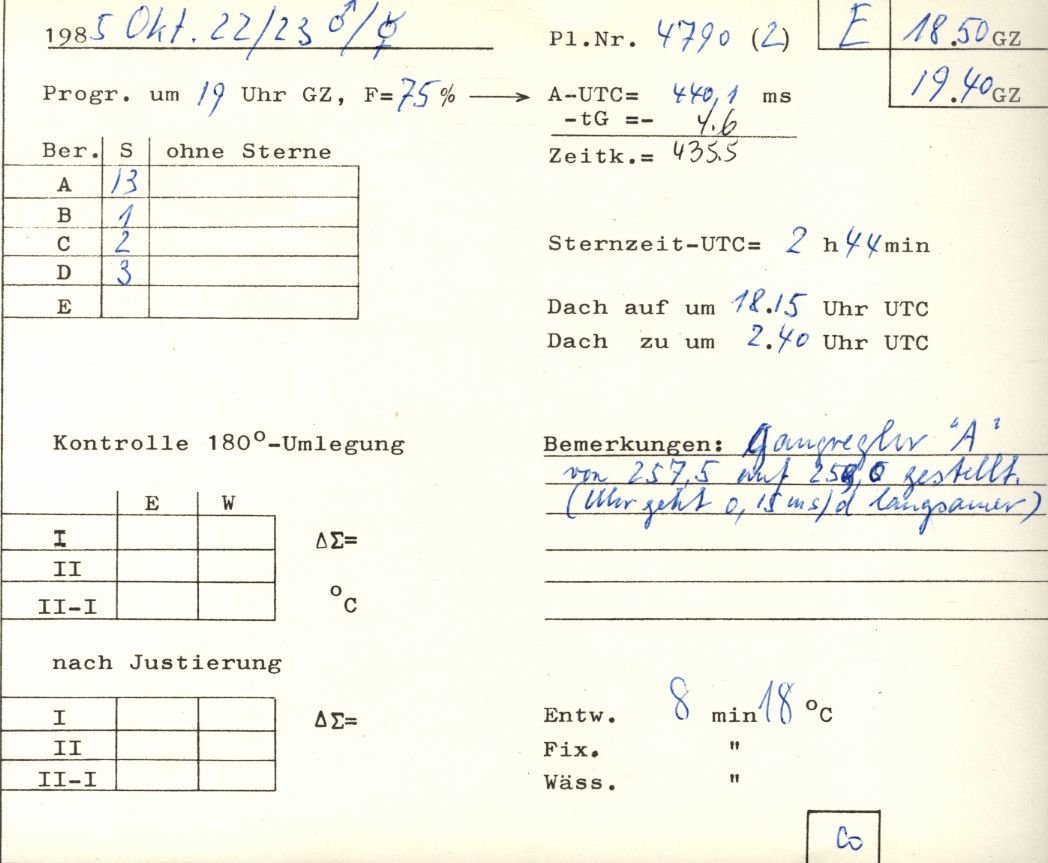 1985 Okt. 22/23 ♂/☿
Pl.Nr. 4790 (2)
E 18.50 GZ
19.40 GZ
Progr. um 19 Uhr GZ, F=75% → A-UTC= 440,1 ms
-tG =- 4.6
Zeitk.= 435.5
Ber. S ohne Sterne
A 13
B 1
C 2
D 3
E
Sternzeit-UTC= 2 h 44 min
Dach auf um 18.15 Uhr UTC
Dach zu um 2.40 Uhr UTC
Kontrolle 180°-Umlegung
E W
I ΔΣ=
II
II-I °C
Bemerkungen: Gangregler "A"
von 257,5 auf gestellt.
(Uhr geht 0,15 ms/d langsamer)
nach Justierung
I ΔΣ=
II
II-I
Entw. 8 min 18 °C
Fix. "
Wäss. "
Co